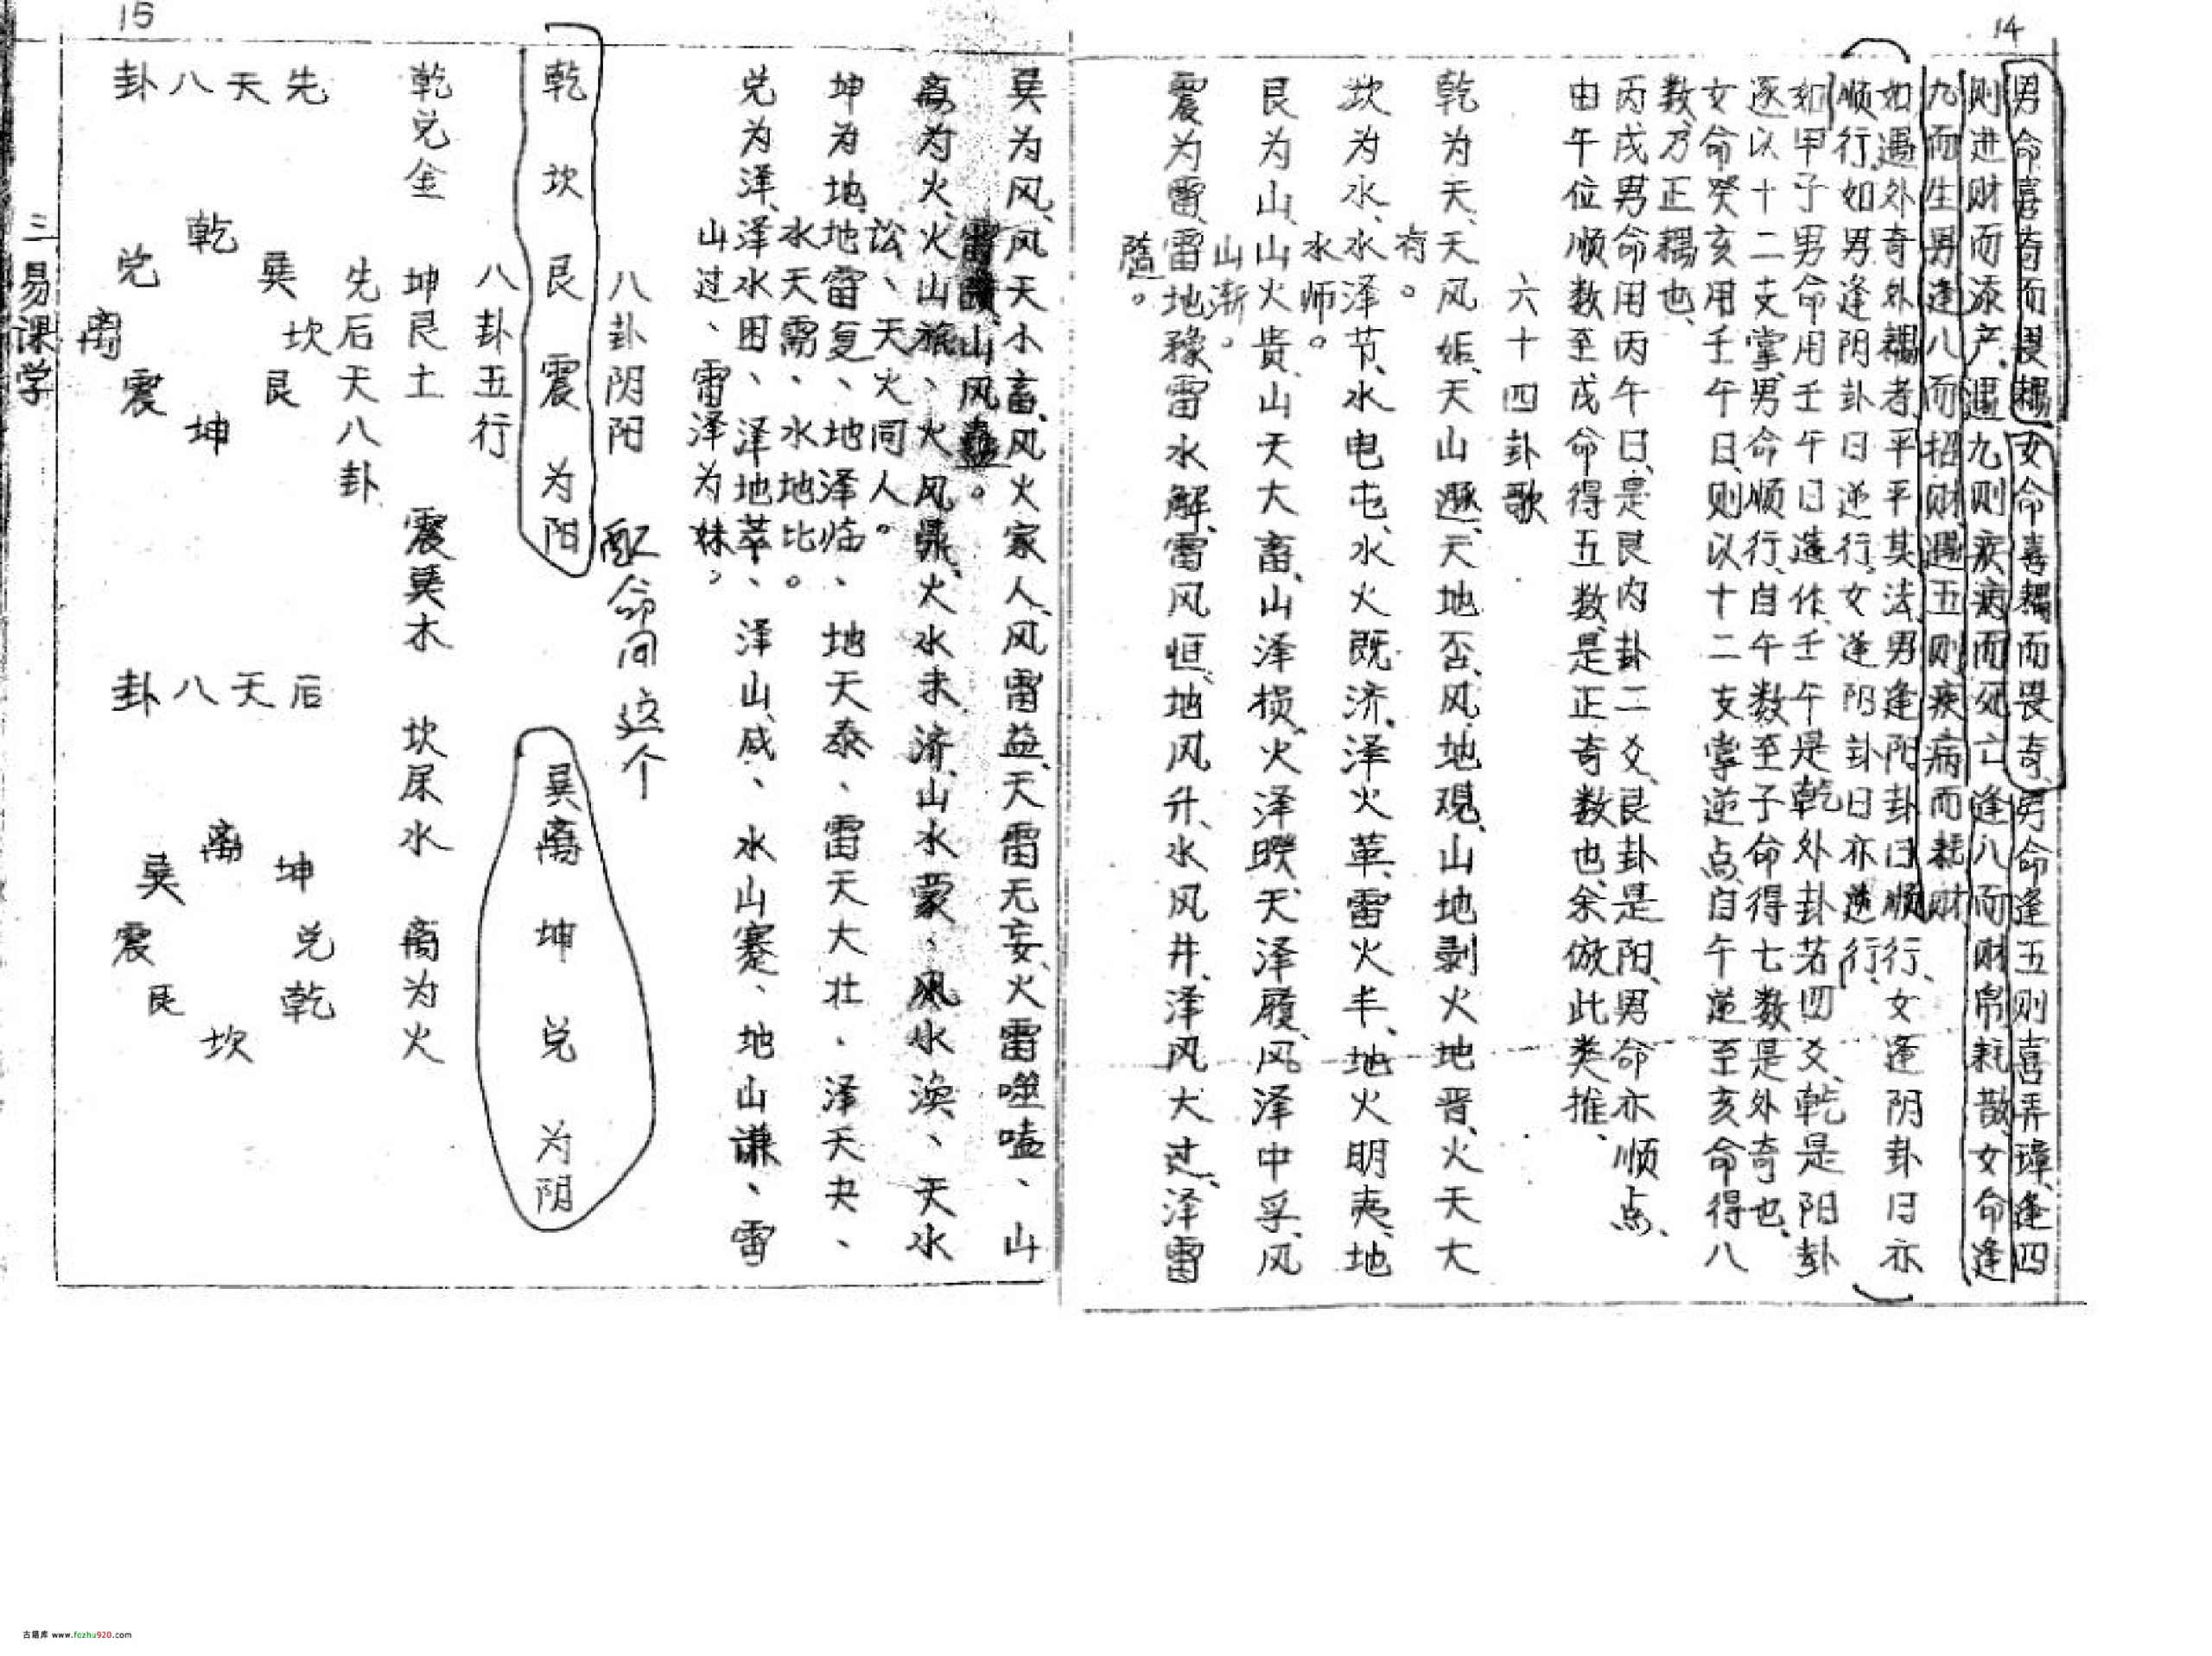 14
男命喜奇而畏耦、女命喜耦而畏奇、男命逢五则喜弄璋、逢四
则进财而添产、遇九则疾病而死亡、逢八而财帛耗散、女命逢
九而生男逢八而招财、遇五则疾病而耗财
如遇外奇外耦者、平平其法、男逢阳卦日顺行、女逢阴卦日亦
顺行、如男逢阴卦日逆行、女逢阳卦日亦逆行、
如甲子男命用壬午日逢作、壬午是乾外卦若四爻、乾是阳卦
逐以十二支掌、男命顺行、自午数至子命得七数是外奇也、
女命癸亥用壬午日、则以十二支掌逆点、自午逆至亥命得八
数、乃正耦也、
丙戌男命用丙午日、是艮内卦二爻、艮卦是阳、男命亦顺点、
由午位顺数至戌命得五数、是正奇数也、余倣此类推、
六十四卦歌
乾为天、天风姤、天山遯、天地否、风地观、山地剥火地晋、火天大
有。
坎为水、水泽节、水电屯、水火既济、泽火革、雷火丰、地火明夷、地
水师。
艮为山、山火贵、山天大畜、山泽损、火泽睽、天泽履、风泽中孚、风
山渐。
震为雷、雷地豫雷水解、雷风恒、地风升、水风井、泽风大过、泽雷
随。
15
巽为风、风天小畜、风火家人、风雷益、天雷无妄、火雷噬嗑、山
山风蛊。
离为火、火山旅、火风鼎、火水未济、山水蒙、风水涣、天水
讼、天火同人。
坤为地、地雷复、地泽临、地天泰、雷天大壮、泽天夬、
水天需、水地比。
兑为泽、泽水困、泽地萃、泽山咸、水山蹇、地山谦、雷
山过、雷泽为妹。
八卦阴阳 配命问这个
乾坎艮震为阳 巽离坤兑为阴
八卦五行
乾兑金 坤艮土 震巽木 坎属水 离为火
先后天八卦
先天八卦
乾
兑 巽
离 坎
震 艮
坤
后天八卦
离
巽 坤
震 兑
艮 乾
坎
三易课学
古籍库 www.fozhu920.com